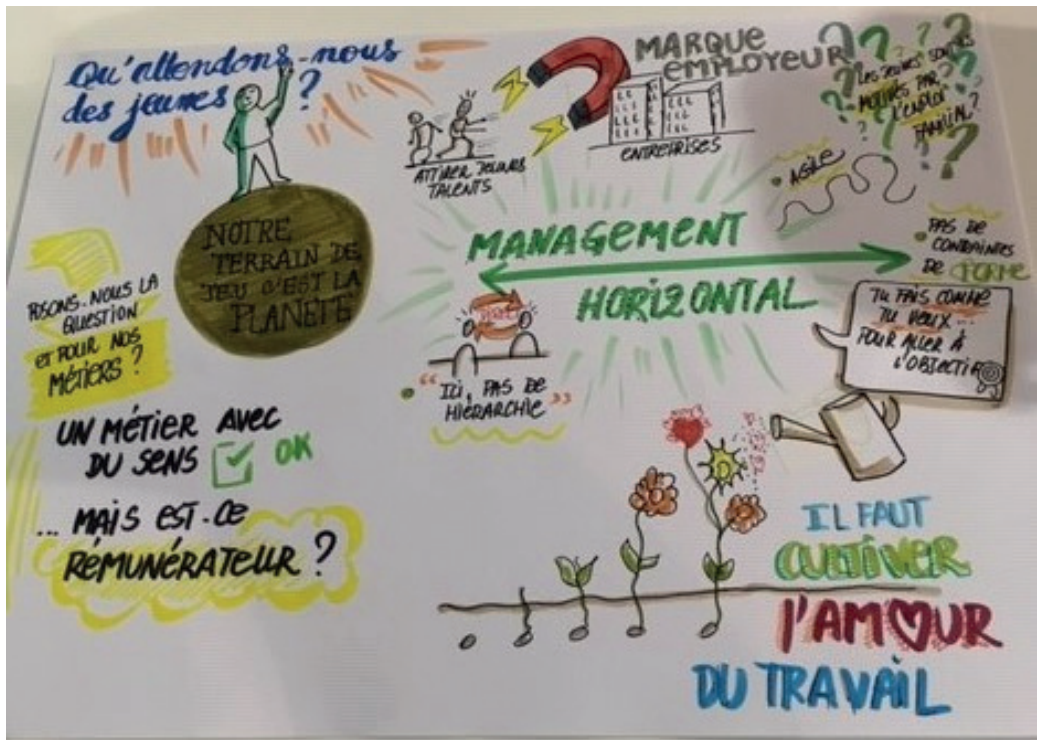 Qu'attendons-nous
des jeunes ?
NOTRE
TERRAIN DE
JEU C'EST LA
PLANETE
POSONS-NOUS LA
QUESTION
et POUR NOS
MÉTIERS ?
UN MÉTIER AVEC
DU SENS OK
... MAIS EST-CE
RÉMUNÉRATEUR ?
ATTIRER JEUNES
TALENTS
MARQUE
EMPLOYEUR
ENTREPRISES
LES JEUNES SONT-ILS
MOTIVÉS PAR
L'EMPLOI
FAMILIAL ?
AGILE
MANAGEMENT
HORIZONTAL
PAS DE
CONTRAINTES
DE FORME
"ICI, PAS DE
HIÉRARCHIE"
TU FAIS COMME
TU VEUX...
POUR ALLER À
L'OBJECTIF
IL FAUT
CULTIVER
l'AMOUR
DU TRAVAIL